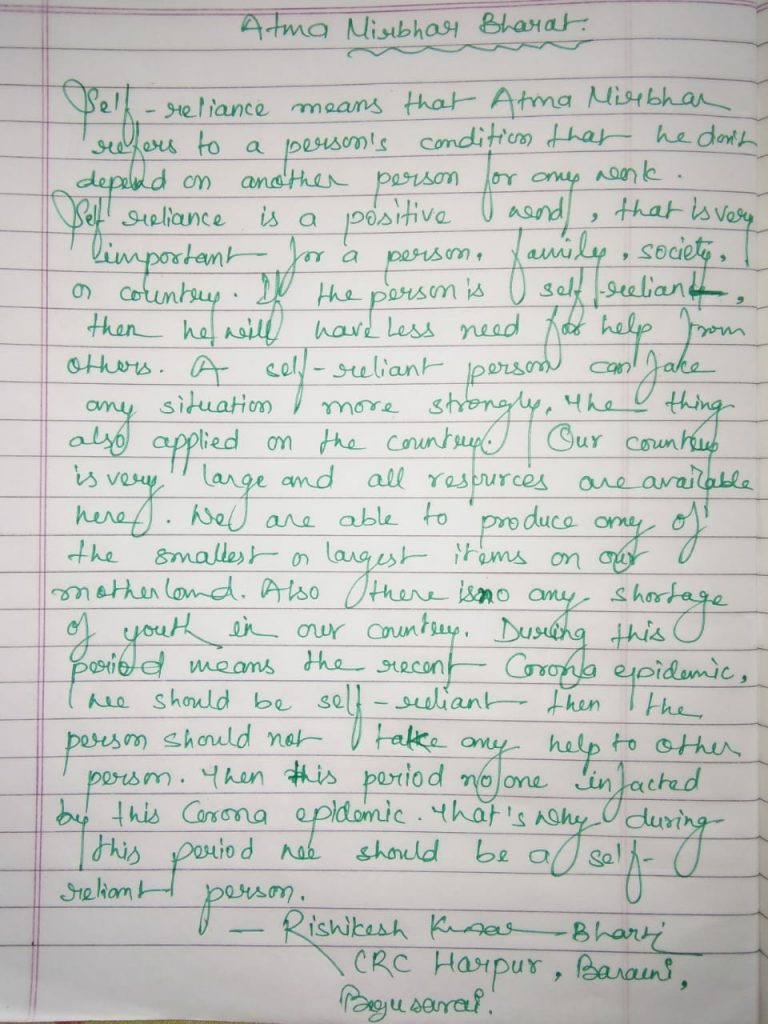 Atma Nirbhar Bharat.
Self-reliance means that Atma Nirbhar
refers to a person's condition that he don't
depend on another person for any work.
Self reliance is a positive word, that is very
important for a person, family, society,
or country. If the person is self-reliant,
then he will have less need for help from
others. A self-reliant person can take
any situation more strongly, the thing
also applied on the country. Our country
is very large and all resources are available
here. We are able to produce any of
the smallest or largest items on our
motherland. Also there is no any shortage
of youth in our country. During this
period means the recent Corona epidemic,
we should be self-reliant then the
person should not take any help to other
person. Then this period no one infacted
by this Corona epidemic. That's why during
this period we should be a self-
reliant person.
— Rishikesh Kumar Bharti
CRC Harpur, Barauni,
Begusarai.